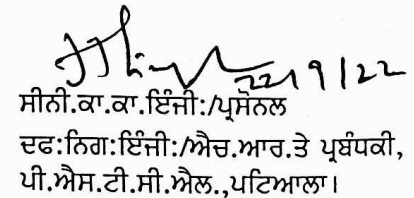 22/9/22
ਸੀਨੀ.ਕਾ.ਕਾ.ਇੰਜੀ:/ਪ੍ਰਸੋਨਲ
ਦਫ:ਨਿਗ:ਇੰਜੀ:/ਐਚ.ਆਰ.ਤੇ ਪ੍ਰਬੰਧਕੀ,
ਪੀ.ਐਸ.ਟੀ.ਸੀ.ਐਲ.,ਪਟਿਆਲਾ।